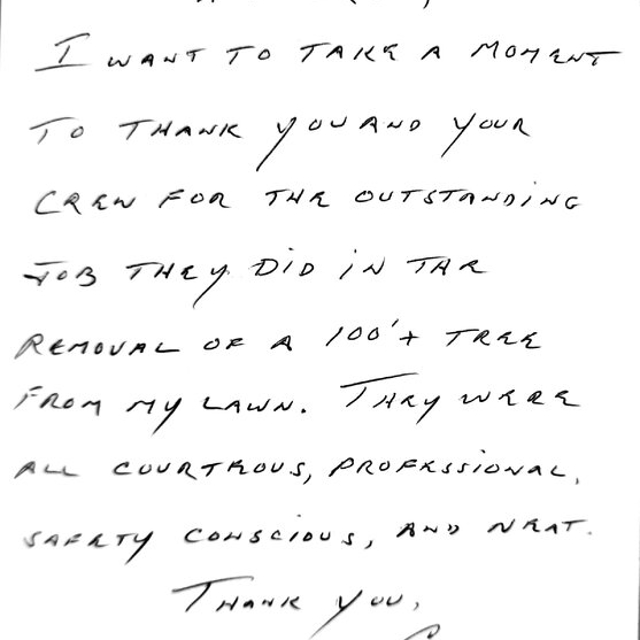 I WANT TO TAKE A MOMENT
TO THANK YOU AND YOUR
CREW FOR THE OUTSTANDING
JOB THEY DID IN THE
REMOVAL OF A 100'+ TREE
FROM MY LAWN. THEY WERE
ALL COURTEOUS, PROFESSIONAL,
SAFETY CONSCIOUS, AND NEAT.
THANK YOU,